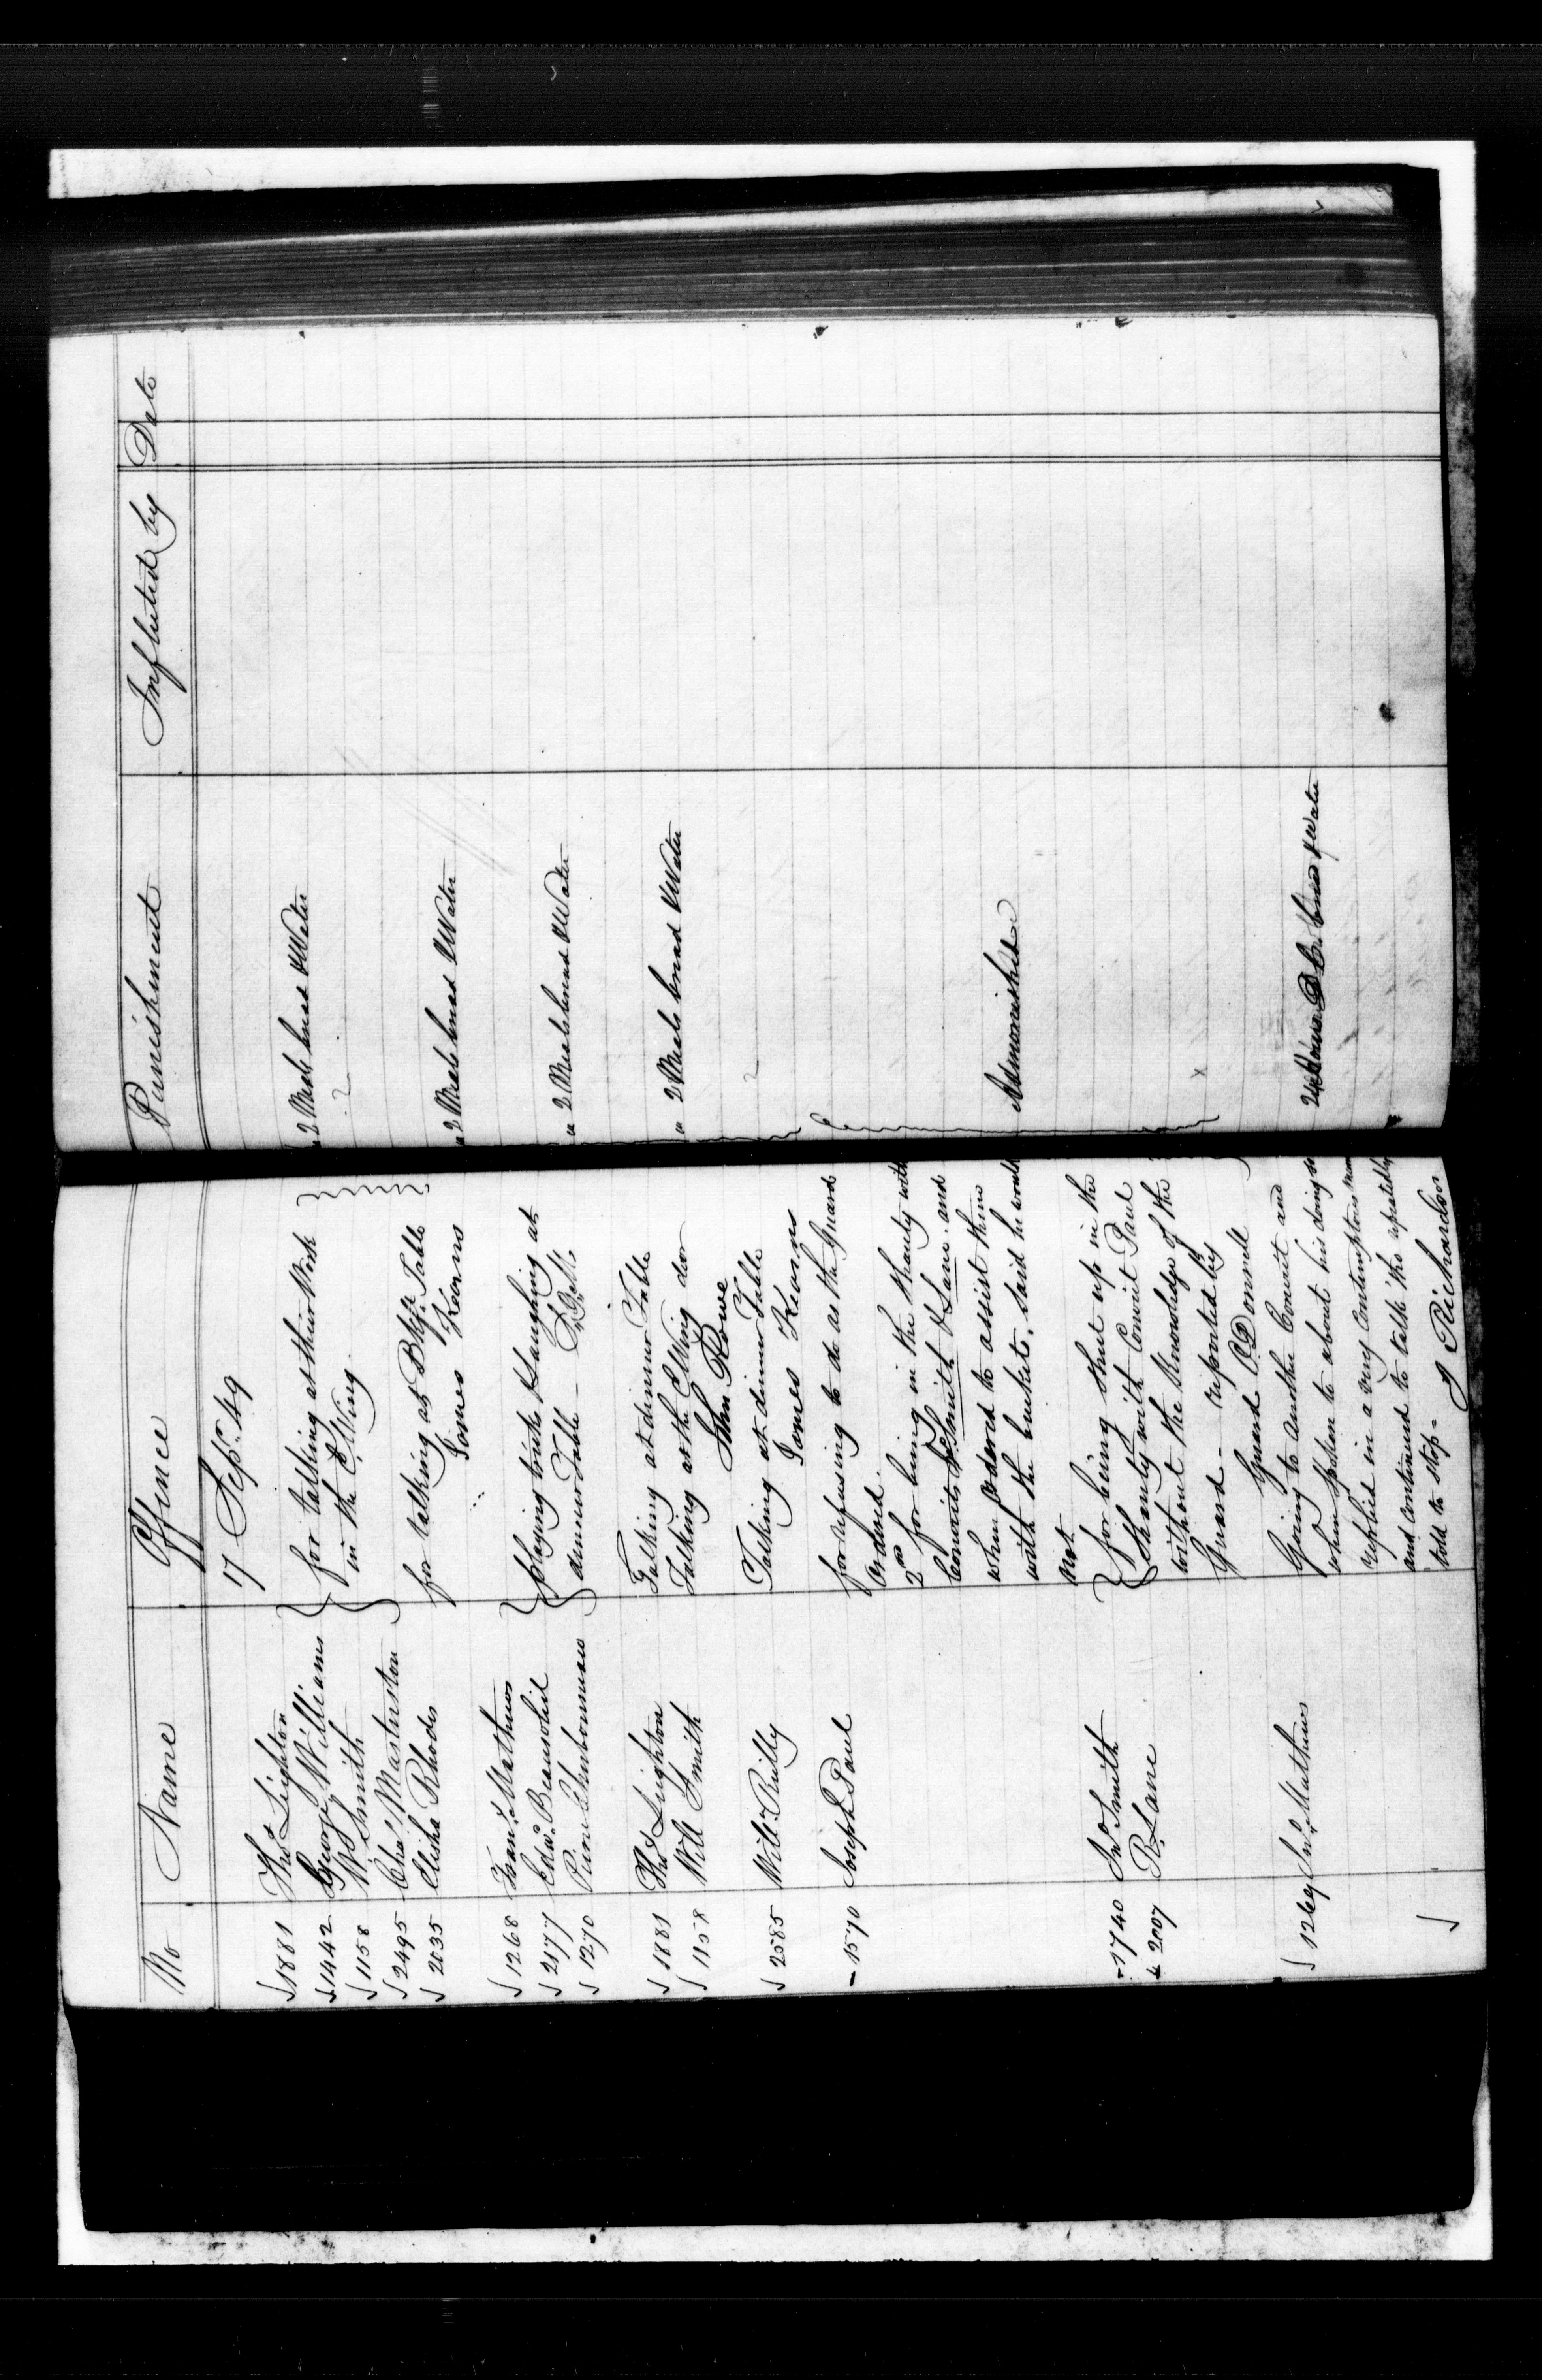 No Name Offence Punishment Inflicted by Date
17 Sept. 49
1881 Thos Lighton for talking at their Work 2 Meals bread & Water
1442 George Williams in the E Wing
1158 W. Smith
2495 Chas Masterston for talking at Bkft. Table 2 Meals bread & Water
2035 Elisha Rhodes James Kearns
1268 Frans. Mathews playing tricks & laughing at 2 Meals bread & Water
2177 Edwd. Beausoliel dinner Table —
1270 Pierre Charbonneau
1881 Thos Lighton Talking at dinner Table 2 Meals bread & Water
1158 Will Smith Talking at the E Wing door
John Rowe
2585 Willm. Reilly Talking at dinner Table
James Kearns
1570 Joseph Paul for refusing to do as the Guard
ordered.
2nd for being in the Shanty with
Convicts Smith & Lane. and
when ordered to assist them Admonished
with the buckets, said he would
not
1740 Jno Smith for being shut up in the
2007 R. Lane Shanty with Convict Paul
without the Knowledge of the
Guard — reported by
Guard
1269 Jn. Mathews Going to another Convict and 24 Hours D. C. bread & Water
when spoken to about his doing so
replied in a very contemptious man
and continued to talk tho repeatedly
told to stop —
J Richardson